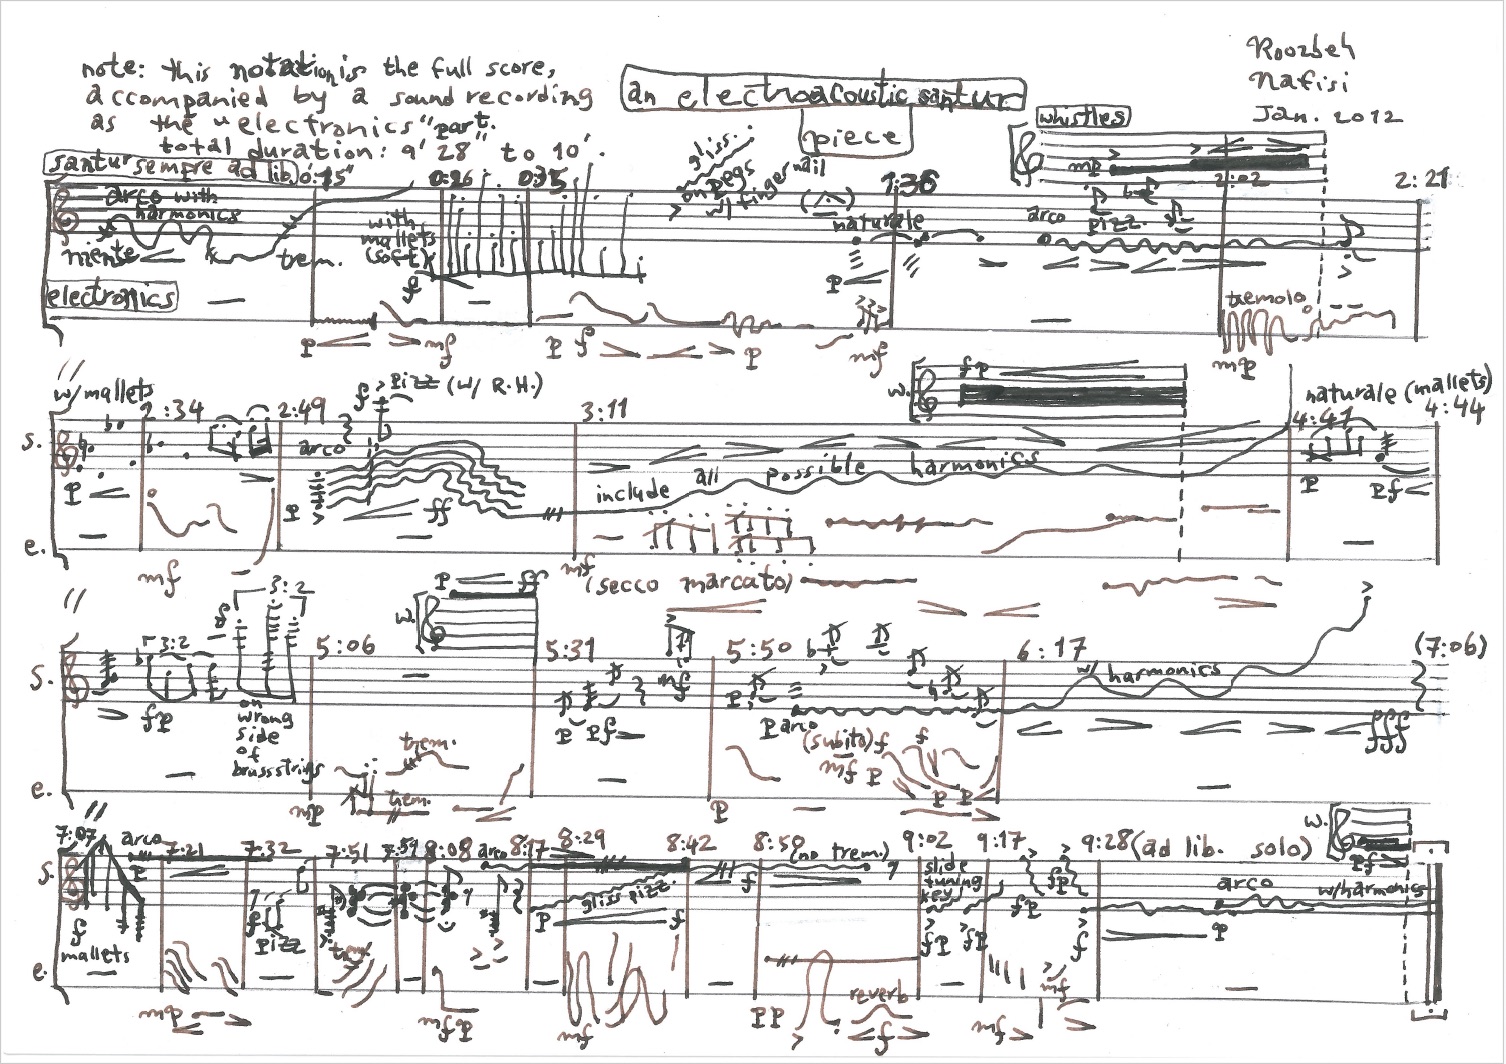 note: this notation is the full score,
accompanied by a sound recording
as the "electronics" part.
total duration: 9' 28" to 10'.
an electroacoustic santur
piece
Roozbeh
Nafisi
Jan. 2012
whistles
mp
santur sempre ad lib.
0:15"
0:26
0:35
gliss.
on pegs
w/ fingernail
1:36
2:02
2:21
arco with
harmonics
niente
trem.
with
mallets
(soft)
f
naturale
p
arco
pizz.
electronics
tremolo
p mf p f p mf mp
w/ mallets
2:34
2:49
f pizz (w/ R.H.)
3:11
w.
fp
naturale (mallets)
4:41
4:44
s.
arco
p
p
ff
include all possible harmonics
p
pf
e.
mf
mf
(secco marcato)
3:2
p ff
w.
3:2
5:06
5:31
5:50
6:17
(7:06)
s.
fp
on
wrong
side
of
brass strings
p pf
mf
p
p arco
w/ harmonics
fff
trem.
(subito) f f
mf p
p p
e.
mp
trem.
p
7:07
arco
7:21
7:32
7:51
7:59
8:08
arco
8:17
8:29
8:42
8:50
(no trem.)
9:02
9:17
9:28 (ad lib. solo)
w.
pf
s.
p
f
mallets
f
pizz
p
gliss pizz.
f
f
slide
tuning
key
fp fp
fp
fp
f
arco
p
w/ harmonics
e.
trem
reverb
mp
mfp
mf
pp
f
mf
mf